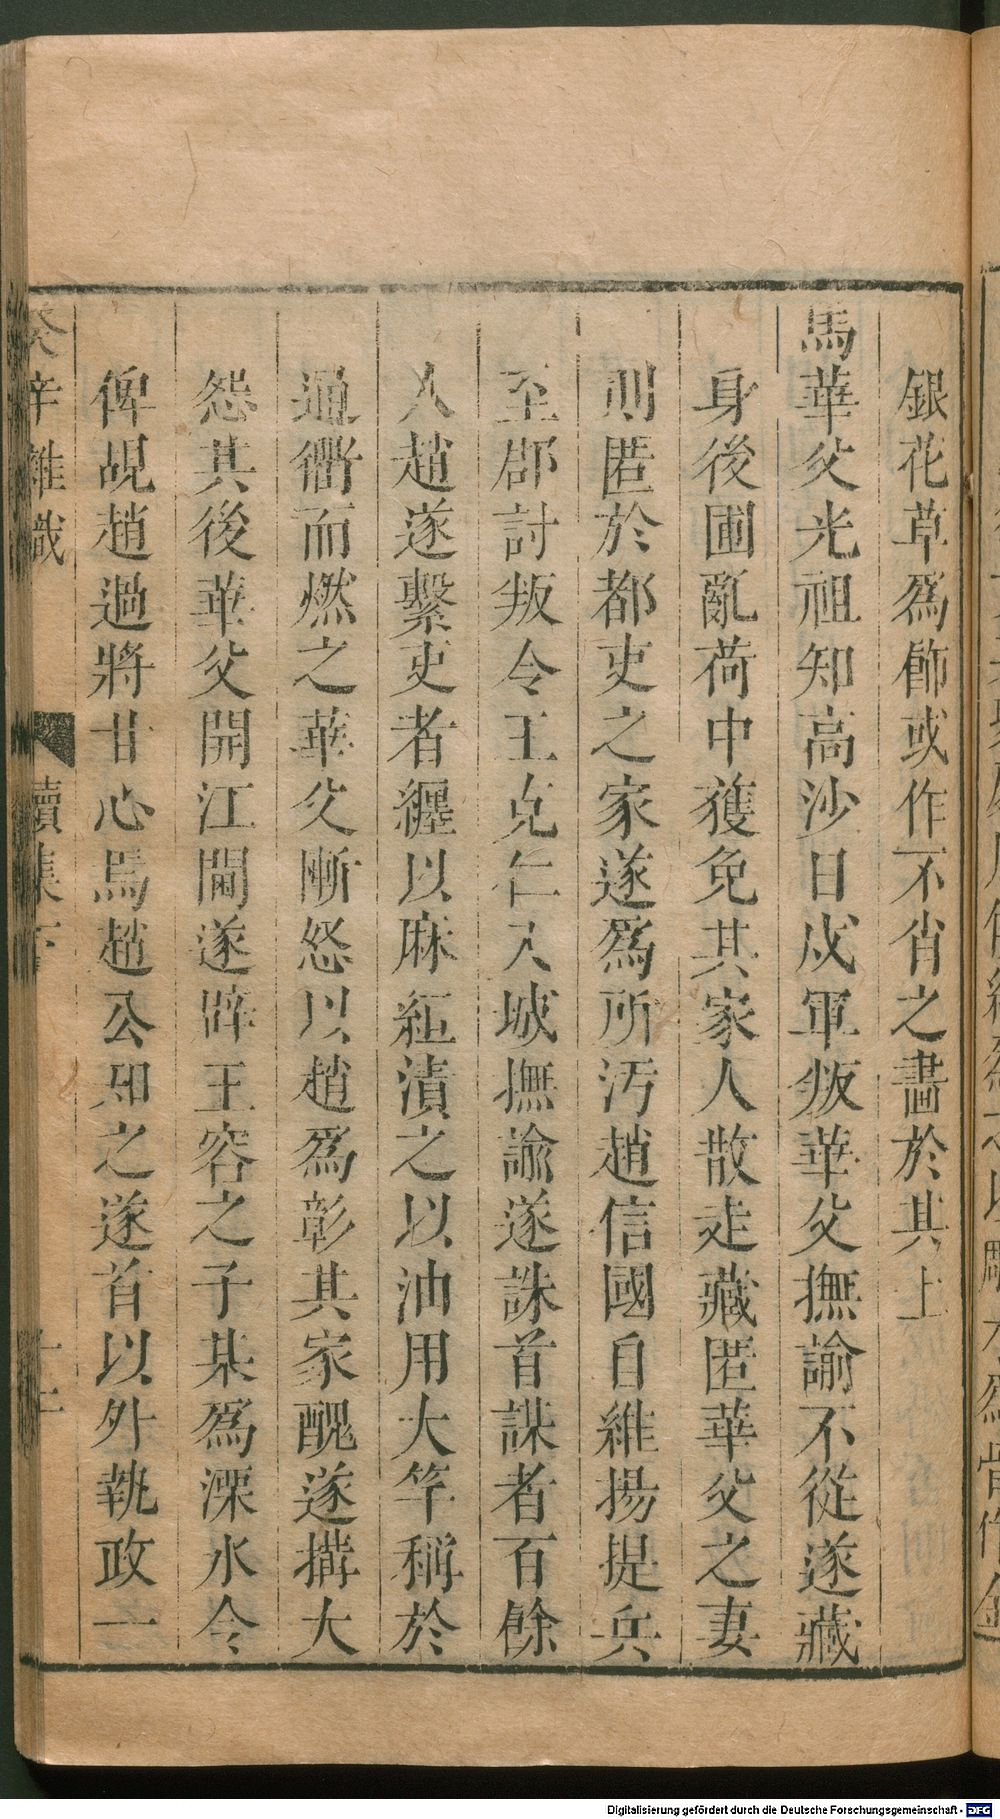 銀花草爲飾或作不肖之畵於其上
馬華父光祖知高沙日戍軍叛華父撫諭不從遂藏
身後圃亂荷中獲免其家人散走藏匿華父之妻
則匿於都吏之家遂爲所汚趙信國自維揚提兵
至郡討叛令王克仁入城撫諭遂誅首謀者百餘
人趙遂繫吏者纏以麻縆漬之以油用大竿稱於
通衢而燃之華父慚怒以趙爲彰其家醜遂搆大
怨其後華父開江閫遂辟王容之子某爲溧水令
俾覘趙過將甘心焉趙公知之遂首以外執政一
癸辛雜識
續集下
Digitalisierung gefördert durch die Deutsche Forschungsgemeinschaft - DFG